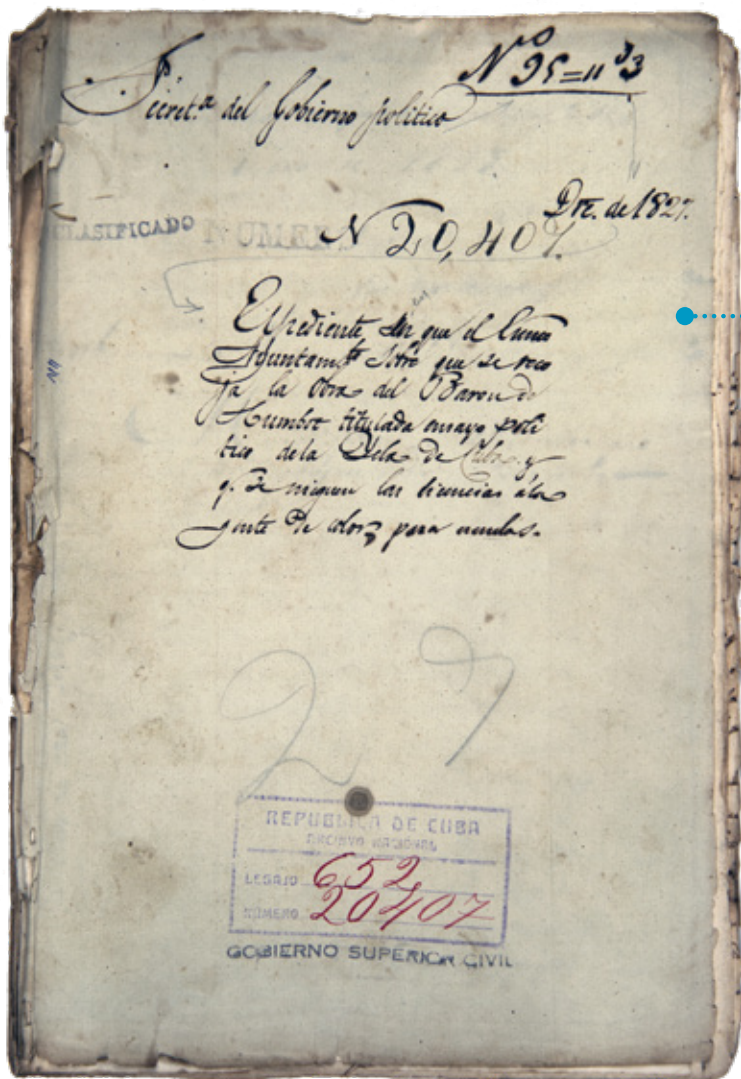 Nº 95=11 33
Secret.ª del Gobierno politico
Dre. de 1827.
CLASIFICADO NUMERO
N 20,407.
Expediente en que el Exmo
Ayuntam.to sobre que se reco
ja la obra del Baron de
Humbot titulada ensayo poli
tico dela Isla de Cuba y
q. se nieguen las licencias ála
gente de color para escuelas.
27
REPUBLICA DE CUBA
ARCHIVO NACIONAL
LEGAJO 652
NUMERO 20407
GOBIERNO SUPERIOR CIVIL